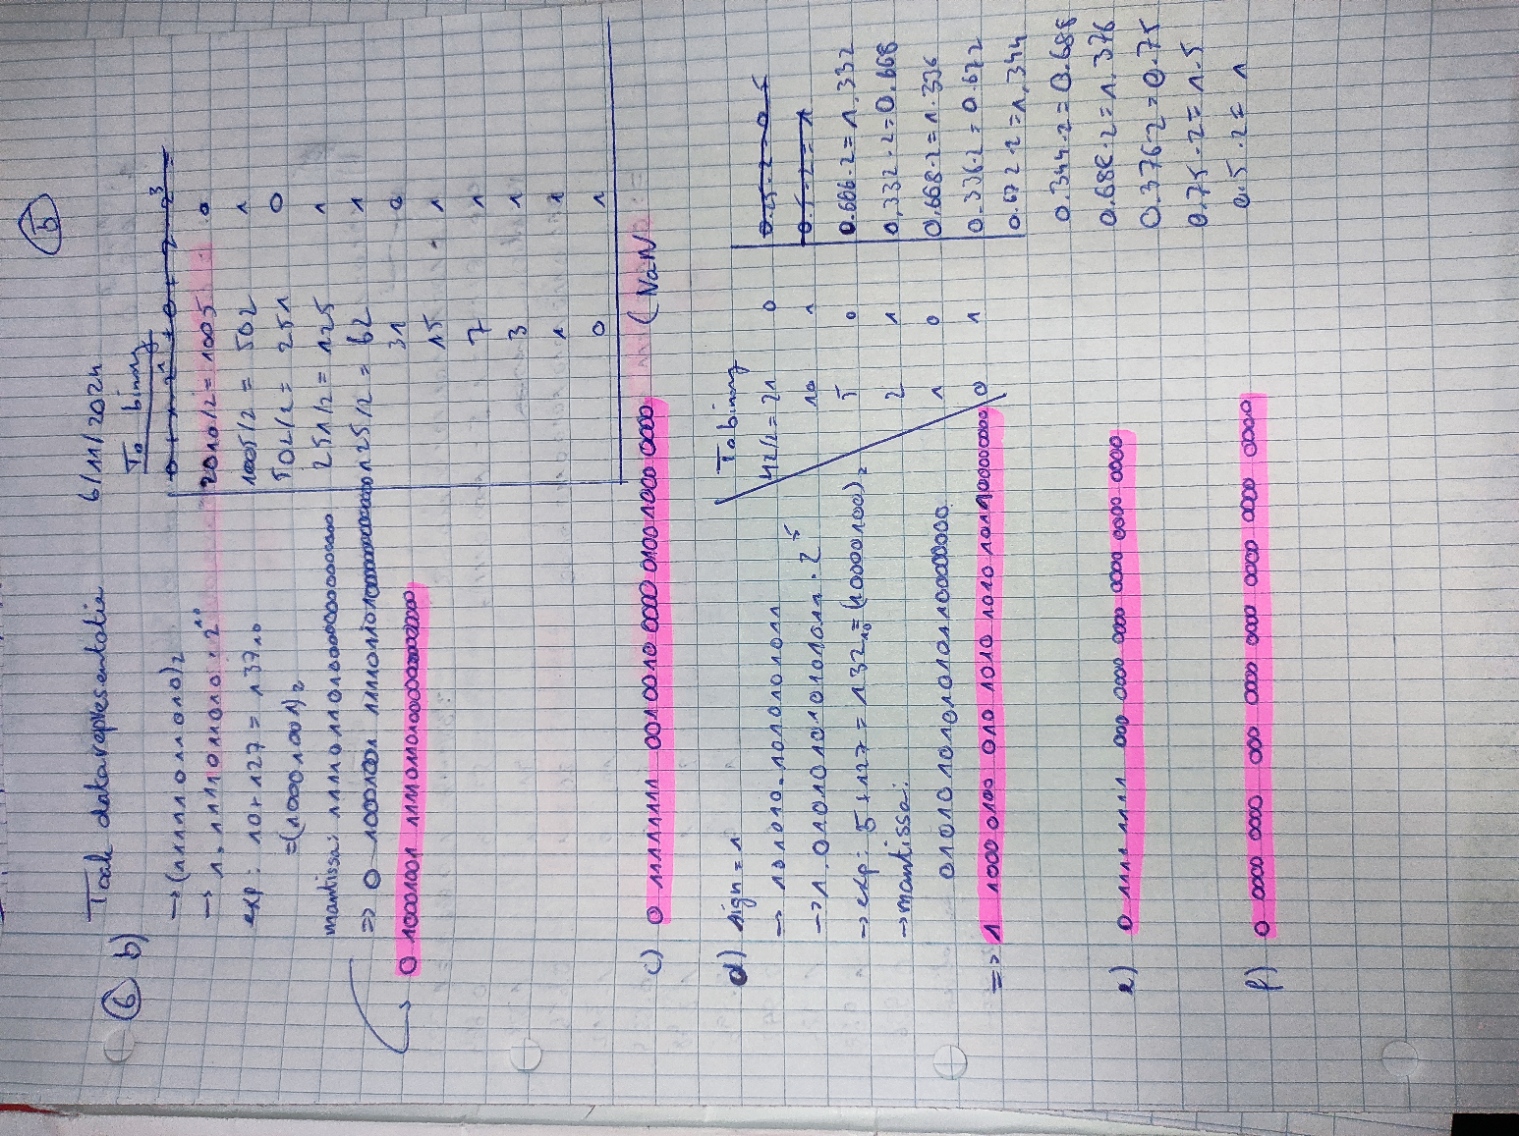 5
Taak datarepresentatie 6/11/2024
6 b)
→ (11111011010)2
→ 1,1111011010 · 2^10
exp: 10+127 = 137 10
=(10001001)2
mantissa: 11110110100000000000000
=> 0 10001001 11110110100000000000000
0 10001001 11110110100000000000000
To binary
2010/2 = 1005 0
1005/2 = 502 1
502/2 = 251 0
251/2 = 125 1
125/2 = 62 1
31 0
15 1
7 1
3 1
1 1
0 1
c) 0 11111111 0010010 0000 0100 1000 0000 (NaN
d) sign = 1
→ 101010.1010101011
→ 1.010101010101011 · 2^5
→ exp: 5+127 = 132 10 = (10000100)2
→ mantissa:
01010101010101100000000
=> 1 1000 0100 010 1010 1010 101100000000
To binary
42/2 = 21 0
10 1
5 0
2 1
1 0
0 1
0.25·2=0.5
0.5·2=1
0.666·2=1,332
0,332·2=0.668
0.668·2=1.336
0.336·2=0.672
0.672·2=1,344
0.344·2=0.688
0.688·2=1.376
0.376·2=0.75
0.75·2=1.5
0.5·2=1
e) 0 1111 1111 000 0000 0000 0000 0000 0000
f) 0 0000 0000 000 0000 0000 0000 0000 0000